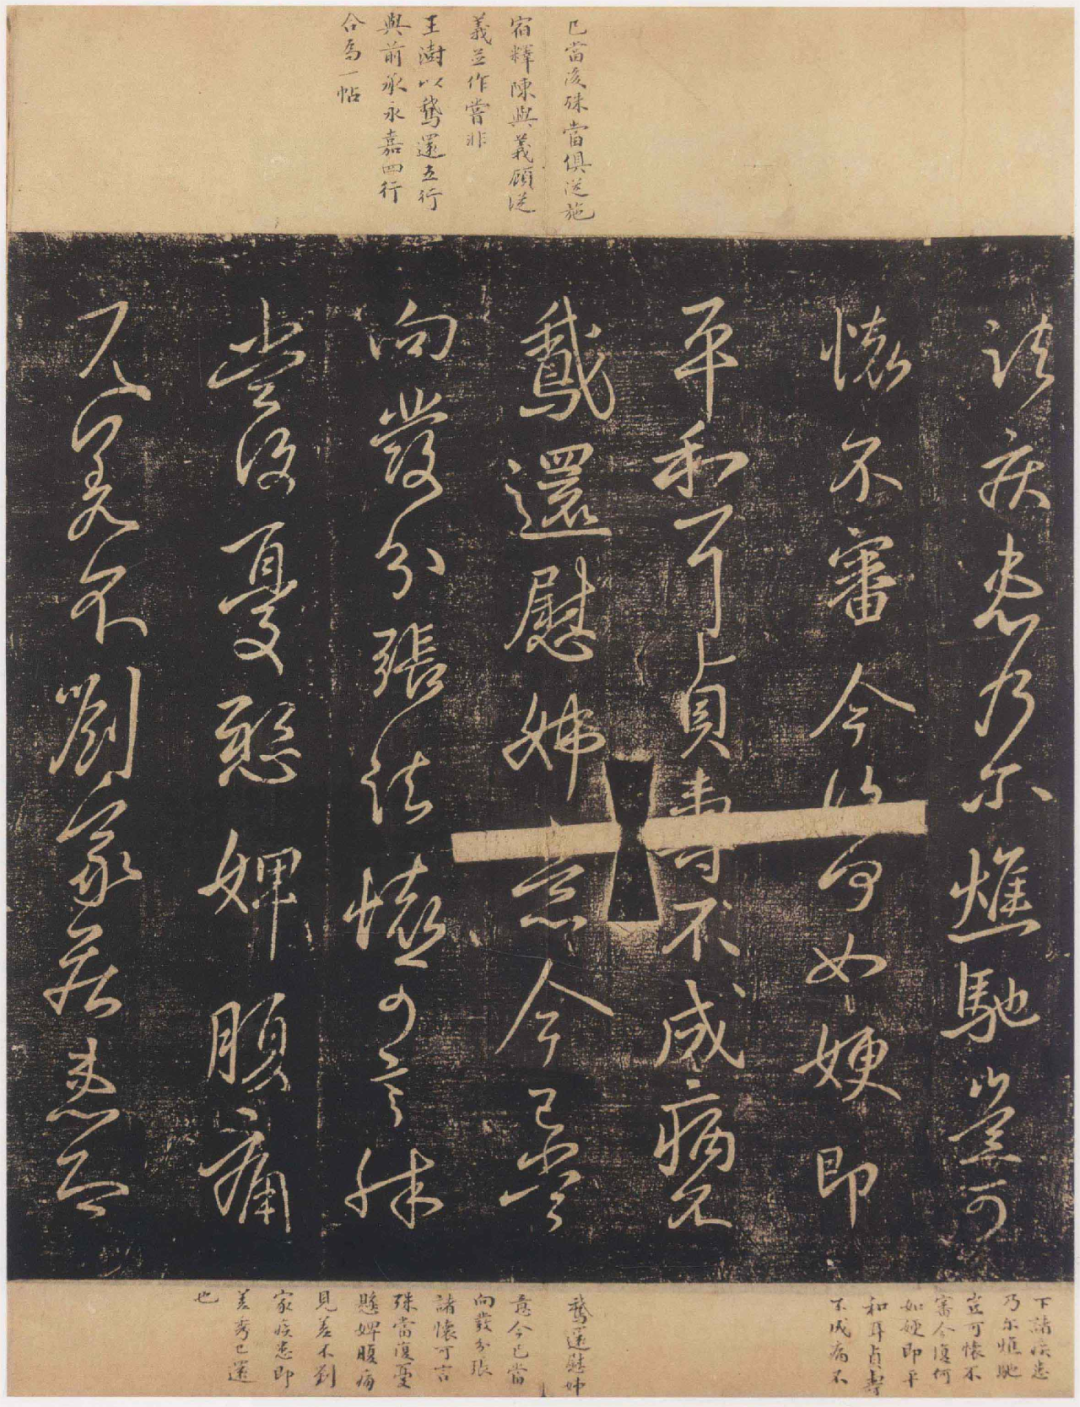 已當復殊當俱從施
宿釋陳與義顧從
義並作嘗非
王澍以鵞還五行
與前承永嘉四行
合為一帖
諸疾患乃爾燋馳豈可
懷不審今復何如媿即
平和耳貞壽不成病不
鵞還慰姊意今已當
向發分張諸懷可言殊
當復憂懸婢腹痛
見差不劉家疾患即
下諸疾患
乃爾燋馳
豈可懷不
審今復何
如媿即平
和耳貞壽
不成病不
鵞還慰姊
意今已當
向發分張
諸懷可言
殊當復憂
懸婢腹痛
見差不劉
家疾患即
差秀已還
也